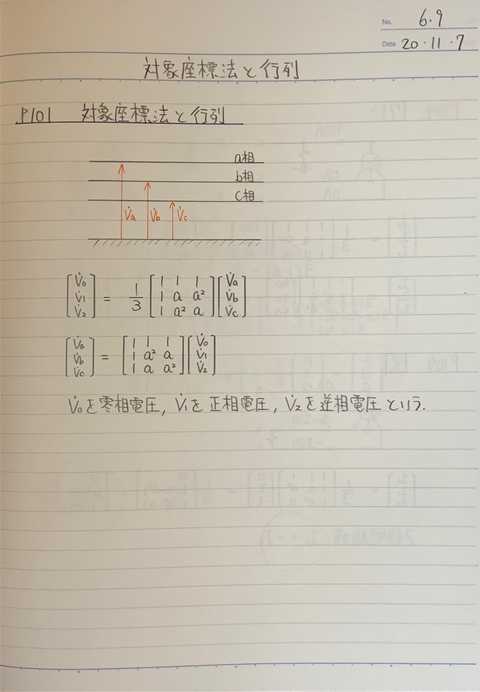 No. 6.9
Date 20・11・7
対象座標法と行列
P101 対象座標法と行列
a相
b相
c相
V̇a V̇b V̇c
[V̇0 V̇1 V̇2] = 1/3 [1 1 1 / 1 a a² / 1 a² a] [V̇a V̇b V̇c]
[V̇a V̇b V̇c] = [1 1 1 / 1 a² a / 1 a a²] [V̇0 V̇1 V̇2]
V̇0を零相電圧, V̇1を正相電圧, V̇2を逆相電圧という.